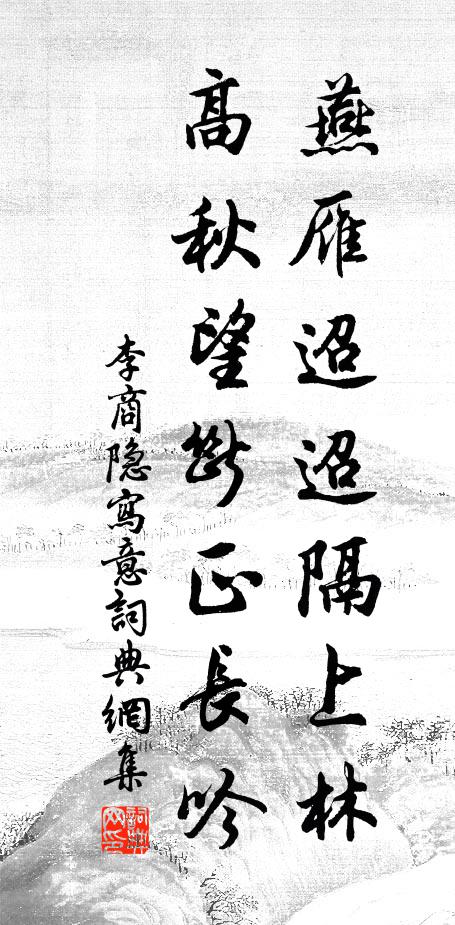 燕雁迢迢隔上林
高秋望斷正長吟
李商隐寫意詞典網集